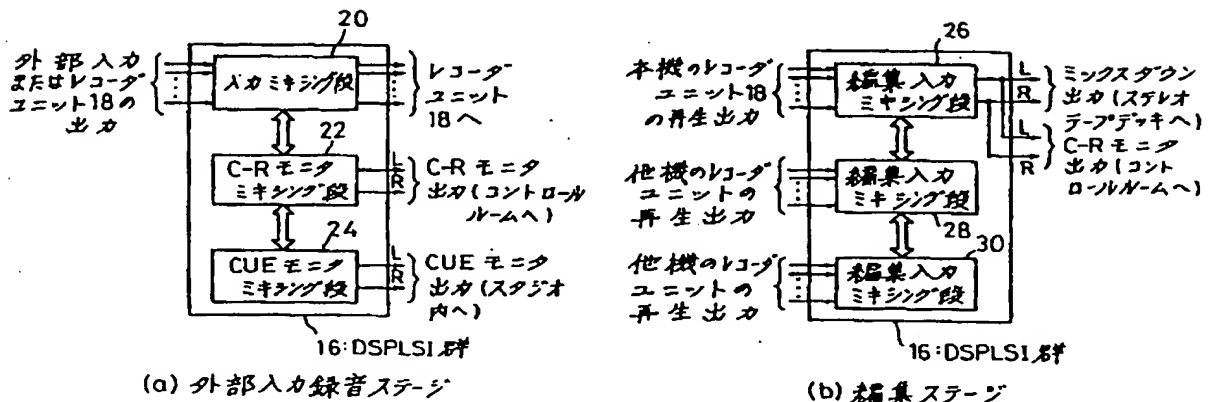 20
外部入力
またはレコーダ
ユニット18の
出力
入力ミキシング段
レコーダ
ユニット
18へ
22
C-Rモニタ
ミキシング段
L
R
C-Rモニタ
出力(コントロール
ルームへ)
24
CUEモニタ
ミキシング段
L
R
CUEモニタ
出力(スタジオ
内へ)
16:DSPLSI群
(a) 外部入力録音ステージ
26
本機のレコーダ
ユニット18
の再生出力
編集入力
ミキシング段
L
R
ミックスダウン
出力(ステレオ
テープデッキへ)
L
R
C-Rモニタ
出力(コント
ロールルームへ)
他機のレコーダ
ユニットの
再生出力
編集入力
ミキシング段
28
30
他機のレコーダ
ユニットの
再生出力
編集入力
ミキシング段
16:DSPLSI群
(b) 編集ステージ